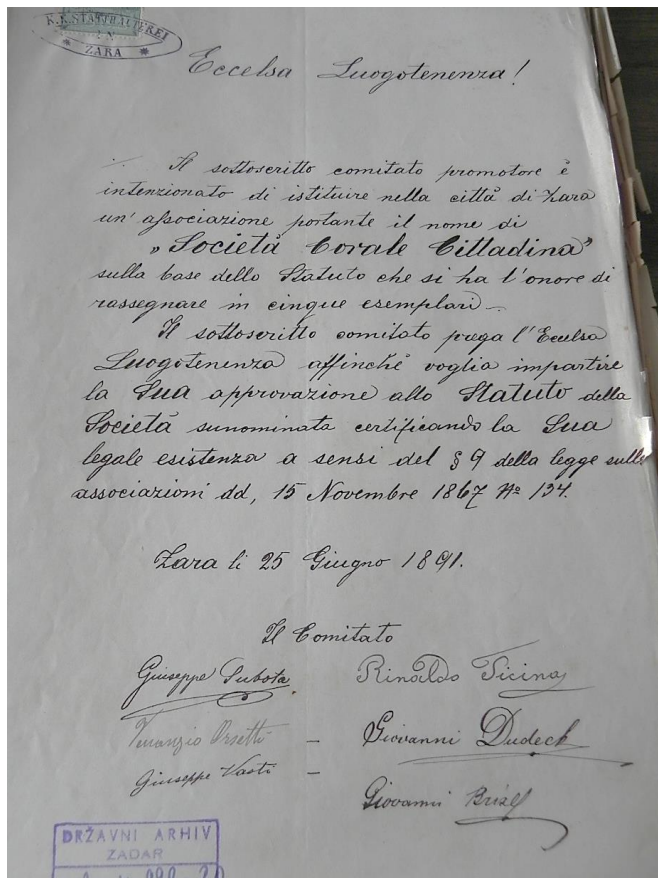 K.K. STATTHALTEREI
IN
* ZARA *
Eccelsa Luogotenenza!
Il sottoscritto comitato promotore è
intenzionato di istituire nella città di Zara
un' associazione portante il nome di
„Società Corale Cittadina"
sulla base dello Statuto che si ha l'onore di
rassegnare in cinque esemplari.
Il sottoscritto comitato prega l'Eccelsa
Luogotenenza affinchè voglia impartire
la Sua approvazione allo Statuto della
Società sunominata certificando la Sua
legale esistenza a sensi del § 9 della legge sulle
associazioni dd, 15 Novembre 1867 No 134.
Zara li 25 Giugno 1891.
Il Comitato
Giuseppe Subota
Rinaldo Ticina
Venanzio Orsetti –
Giovanni Dudeck
Giuseppe Vasti –
Giovanni
DRŽAVNI ARHIV
ZADAR